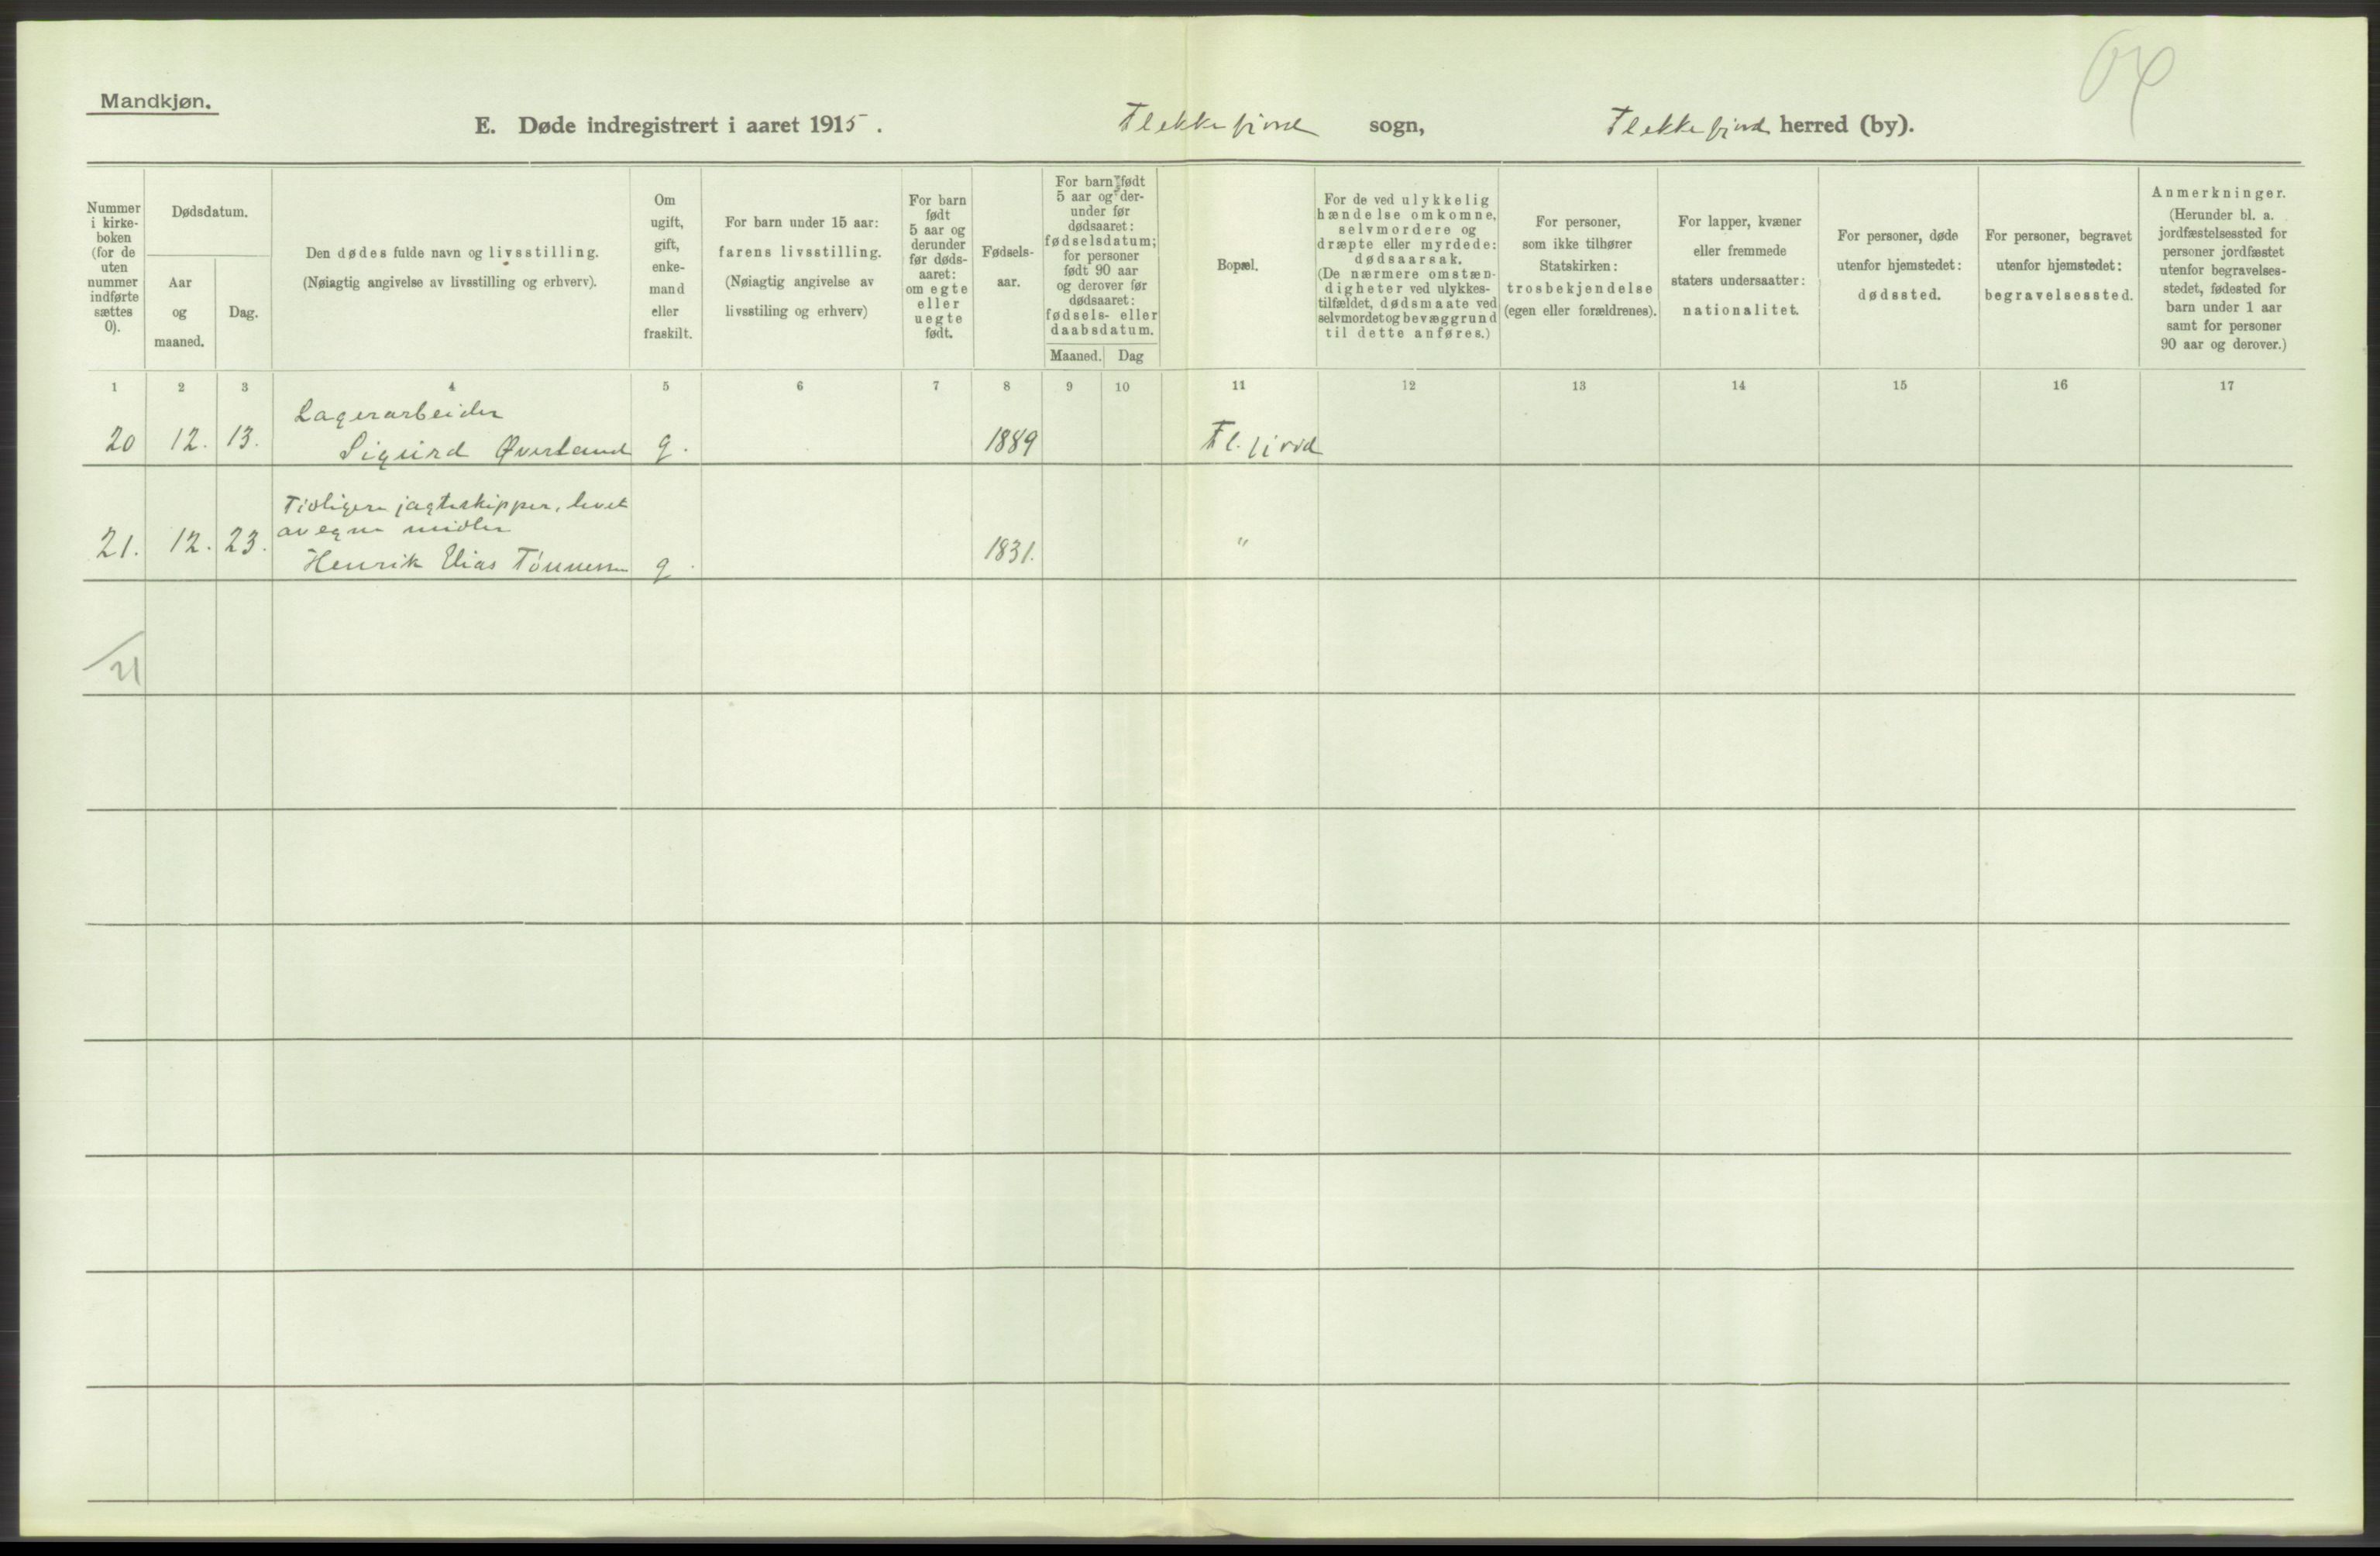 Mandkjøn.
E. Døde indregistrert i aaret 1915. Flekkefjord sogn, Flekkefjord herred (by).
Nummer i kirke-boken (for de uten nummer indførte sættes 0).
Dødsdatum.
Aar og maaned.
Dag.
Den dødes fulde navn og livsstilling.
(Nøiagtig angivelse av livsstilling og erhverv).
Om ugift, gift, enke-mand eller fraskilt.
For barn under 15 aar:
farens livsstilling.
(Nøiagtig angivelse av
livsstiling og erhverv)
For barn født 5 aar og derunder før døds-aaret: om egte eller uegte født.
Fødsels-aar.
For barn født
5 aar og der-
under før
dødsaaret:
fødselsdatum;
for personer
født 90 aar
og derover før
dødsaaret:
fødsels- eller
daabsdatum.
Maaned. Dag
Bopæl.
For de ved ulykkelig
hændelse omkomne,
selvmordere og
dræpte eller myrdede:
dødsaarsak.
(De nærmere omstæn-
digheter ved ulykkes-
tilfældet, dødsmaate ved
selvmordet og bevæggrund
til dette anføres.)
For personer,
som ikke tilhører
Statskirken:
trosbekjendelse
(egen eller forældrenes).
For lapper, kvæner
eller fremmede
staters undersaatter:
nationalitet.
For personer, døde
utenfor hjemstedet:
dødssted.
For personer, begravet
utenfor hjemstedet:
begravelsessted.
Anmerkninger.
(Herunder bl. a.
jordfæstelsessted for
personer jordfæstet
utenfor begravelses-
stedet, fødested for
barn under 1 aar
samt for personer
90 aar og derover.)
1 2 3 4 5 6 7 8 9 10 11 12 13 14 15 16 17
Lagerarbeider
20 12. 13. Sigurd Øverland g. 1889 Fl.fjord
Tidligere jagteskipper, levet
av egne midler
21. 12. 23. Henrik Elias Tönnessen g. 1831. "
21